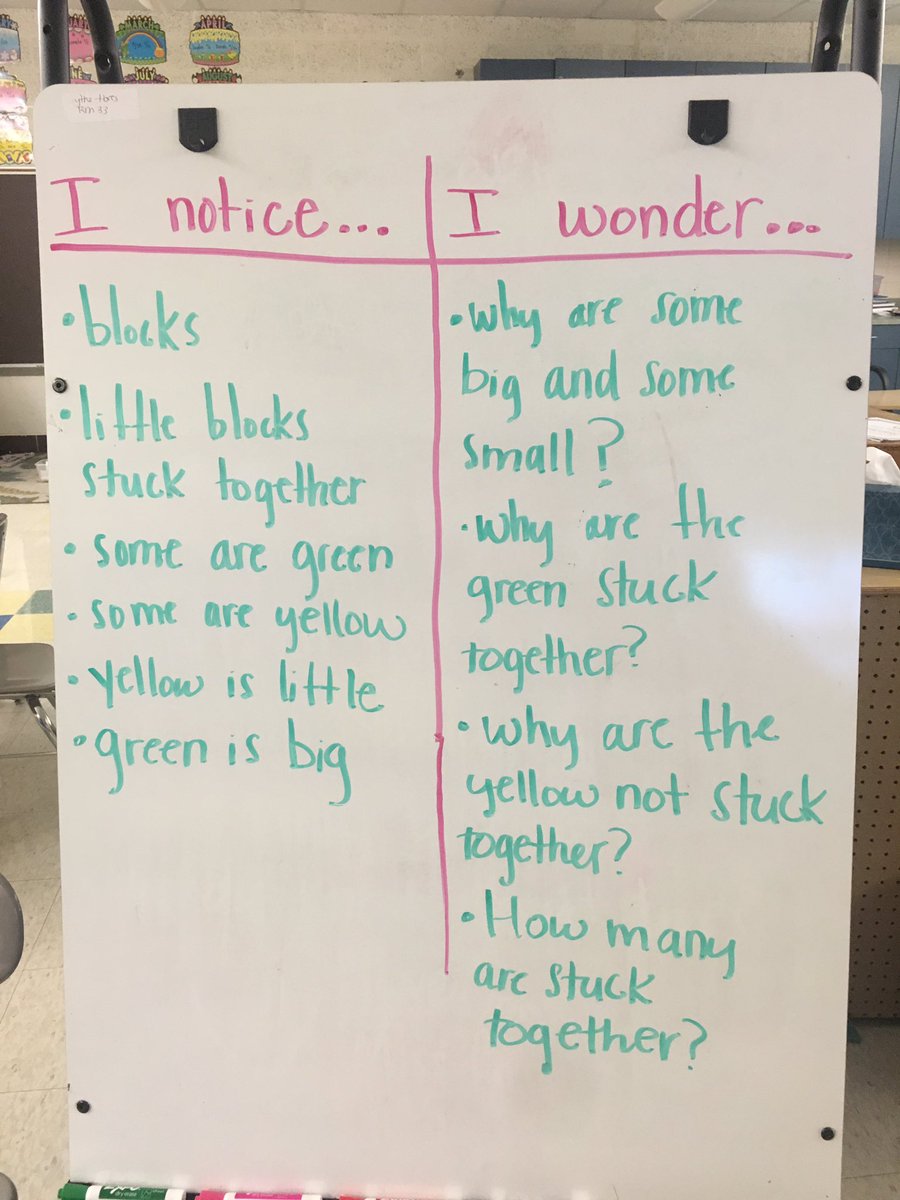 MARCH
APRIL
JULY
AUGUST
Rm 33
I notice...
• blocks
• little blocks
stuck together
• some are green
• some are yellow
• yellow is little
• green is big
I wonder...
• why are some
big and some
small?
• why are the
green stuck
together?
• why are the
yellow not stuck
together?
• How many
are stuck
together?